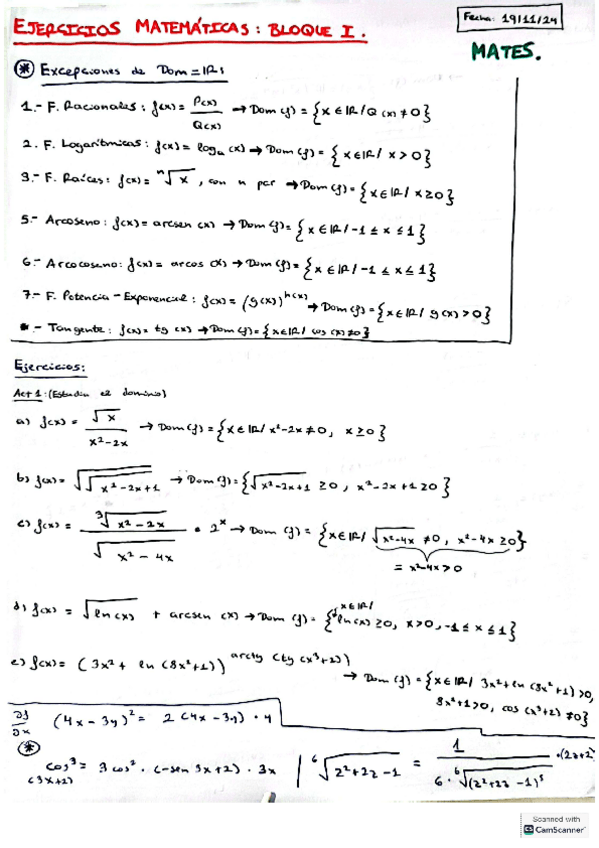 EJERCICIOS MATEMÁTICAS: BLOQUE I.
Fecha: 19/11/24
MATES.
* Excepciones de Dom = IR:
1.- F. Racionales: f(x) = P(x)/Q(x) → Dom(f) = {x ∈ IR / Q(x) ≠ 0}
2. F. Logarítmicas: f(x) = logₐ(x) → Dom(f) = {x ∈ IR / x > 0}
3.- F. Raíces: f(x) = ⁿ√x, con n par → Dom(f) = {x ∈ IR / x ≥ 0}
5.- Arcoseno: f(x) = arcsen(x) → Dom(f) = {x ∈ IR / -1 ≤ x ≤ 1}
6.- Arcocoseno: f(x) = arcos(x) → Dom(f) = {x ∈ IR / -1 ≤ x ≤ 1}
7.- F. Potencia - Exponencial: f(x) = (g(x))^h(x) → Dom(f) = {x ∈ IR / g(x) > 0}
.- Tangente: f(x) = tg(x) → Dom(f) = {x ∈ IR / cos(x) ≠ 0}
Ejercicios:
Act 1: (Estudia el dominio)
a) f(x) = √x / (x²-2x) → Dom(f) = {x ∈ IR / x²-2x ≠ 0, x ≥ 0}
b) f(x) = √√(x²-2x+1) → Dom(f) = {√(x²-2x+1) ≥ 0, x²-2x+1 ≥ 0}
c) f(x) = ³√(x²-2x) / √(x²-4x) · 2ˣ → Dom(f) = {x ∈ IR / √(x²-4x) ≠ 0, x²-4x ≥ 0}
= x²-4x > 0
d) f(x) = √ln(x) + arcsen(x) → Dom(f) = {x ∈ IR / ln(x) ≥ 0, x > 0, -1 ≤ x ≤ 1}
e) f(x) = (3x² + ln(8x²+1))^arctg(tg(x³+2))
→ Dom(f) = {x ∈ IR / 3x²+ln(8x²+1) > 0,
8x²+1 > 0, cos(x³+2) ≠ 0}
∂f/∂x (4x-3y)² = 2(4x-3y) · 4
*
cos³(3x+2) = 3cos² · (-sen 3x+2) · 3x | ⁶√(z²+2z-1) = 1 / (6 · ⁶√(z²+2z-1)⁵) · (2z+2)
Scanned with
CS CamScanner